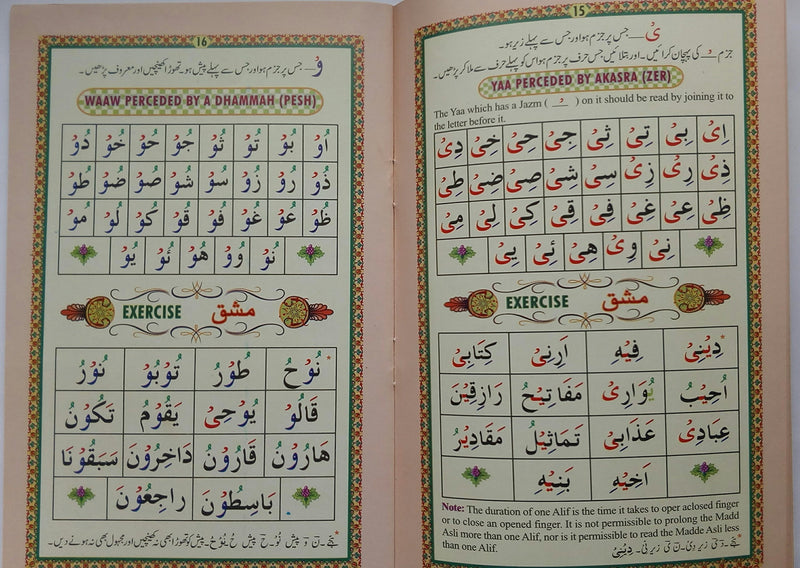 15
یْ جس پر جزم ہو اور جس سے پہلے زیر ہو۔
جزم ـْـ کی پہچان کرائیں۔ اور بتلائیں جس حرف پر جزم ہو اس کو پہلے حرف سے ملا کر پڑھیں۔
YAA PERCEDED BY AKASRA (ZER)
The Yaa which has a Jazm ( ـْـ ) on it should be read by joining it to
the letter before it.
اِیْ بِیْ تِیْ ثِیْ جِیْ حِیْ خِیْ دِیْ
ذِیْ رِیْ زِیْ سِیْ شِیْ صِیْ ضِیْ طِیْ
ظِیْ عِیْ غِیْ فِیْ قِیْ کِیْ لِیْ مِیْ
نِیْ وِیْ هِیْ ئِیْ یِیْ
EXERCISE مشق
دِیْنِیْ* فِیْهِ اَرِنِیْ کِتَابِیْ
اُجِیْبُ یُوَارِیْ مَفَاتِیْحُ رَازِقِیْنَ
عِبَادِیْ عَذَابِیْ تَمَاثِیْلُ مَقَادِیْرُ
اَخِیْهِ بَنِیْهِ
Note: The duration of one Alif is the time it takes to oper aclosed finger
or to close an opened finger. It is not permissible to prolong the Madd
Asli more than one Alif, nor is it permissible to read the Madde Asli less
than one Alif.
16
وْ جس پر جزم ہو اور جس سے پہلے پیش ہو۔ تھوڑا کھینچیں اور معروف پڑھیں۔
WAAW PERCEDED BY A DHAMMAH (PESH)
اُوْ بُوْ تُوْ ثُوْ جُوْ حُوْ خُوْ دُوْ
ذُوْ رُوْ زُوْ سُوْ شُوْ صُوْ ضُوْ طُوْ
ظُوْ عُوْ غُوْ فُوْ قُوْ کُوْ لُوْ مُوْ
نُوْ وُوْ هُوْ ئُوْ یُوْ
EXERCISE مشق
نُوْحُ* طُوْرُ تُوْبُوْ نُوْرُ
قَالُوْ یُوْحِیْ یَقُوْمُ تَکُوْنُ
هَارُوْنَ قَارُوْنَ دَاخِرُوْنَ سَبَقُوْنَا
بَاسِطُوْنَ رَاجِعُوْنَ
* جیسے۔ نٓ و پیش نُوْ۔ حٓ پیش حُ۔ نُوْحُ۔ پیش کو تھوڑا بھی نہ کھینچیں اور مجہول بھی نہ ہونے دیں۔